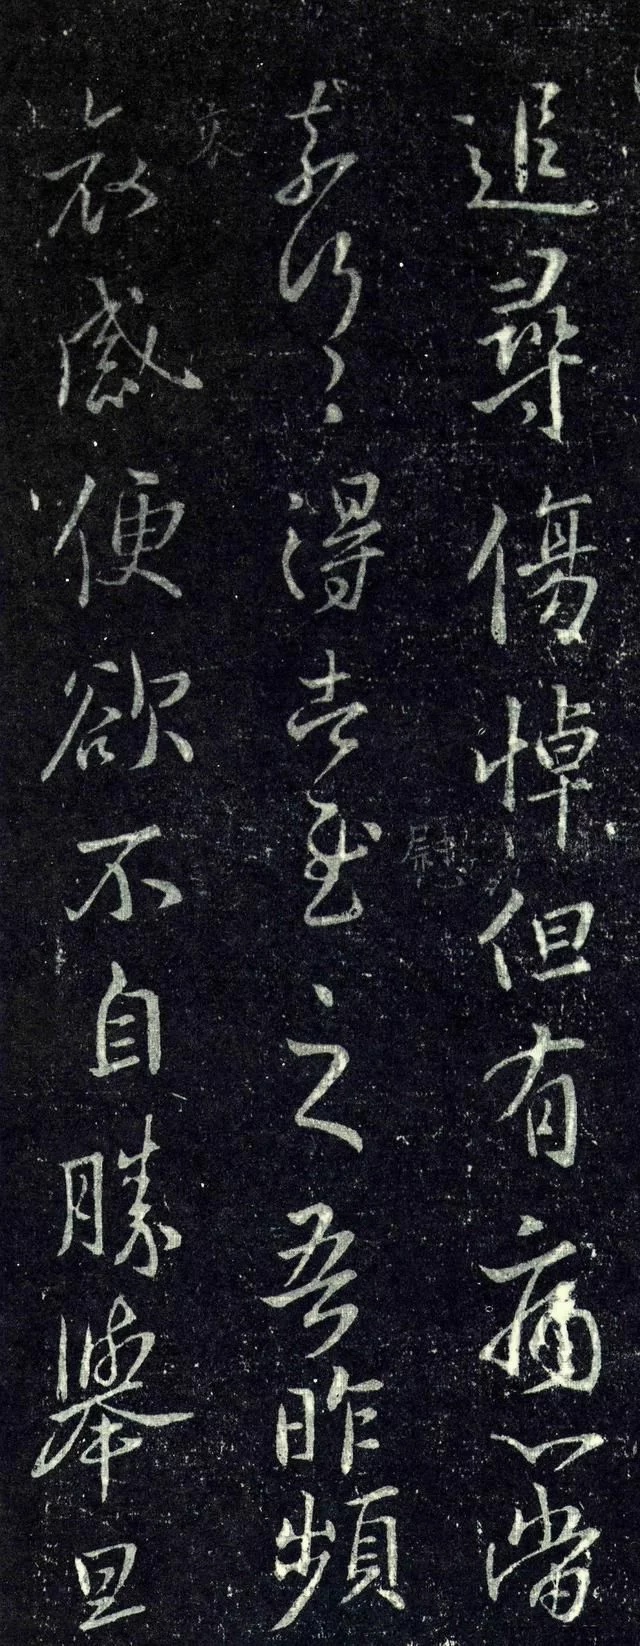 追尋傷悼但有痛心當
慰
奈何〻〻得告慰之吾昨頻
哀
哀感便欲不自勝舉旦